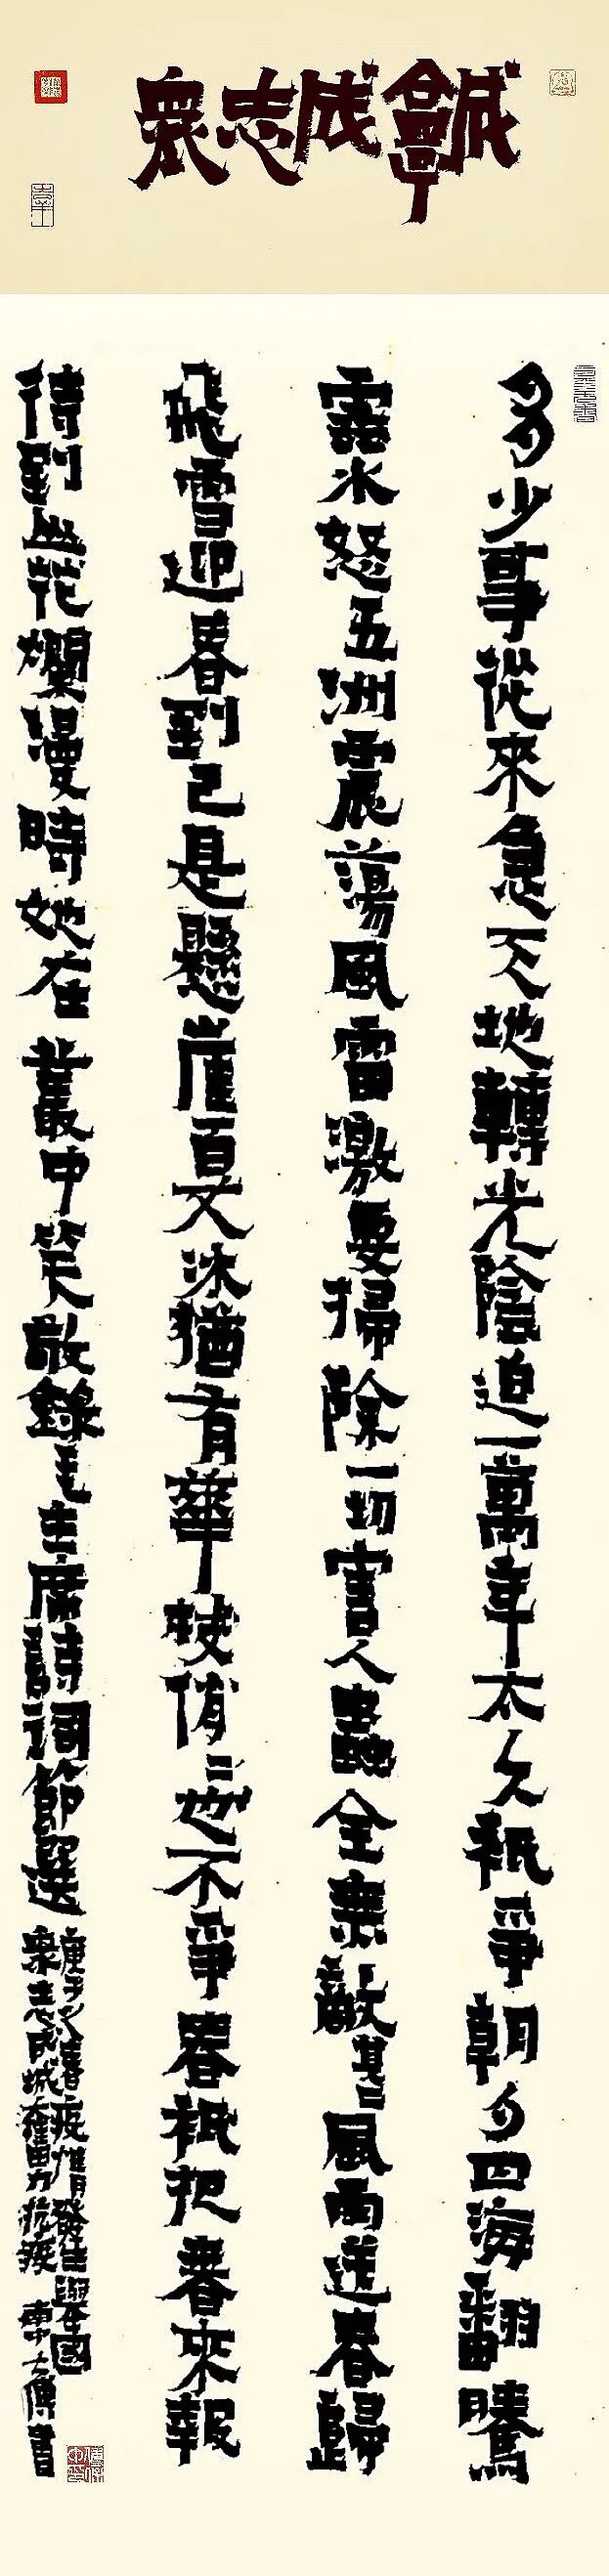 眾志成城
多少事從來急天地轉光陰迫一萬年太久衹爭朝夕四海翻騰
雲水怒五洲震蕩風雷激要掃除一切害人蟲全無敵其二風雨送春歸
飛雪迎春到已是懸崖百丈冰猶有華枝俏〻也不爭春衹把春來報
待到山花爛漫時她在叢中笑敬錄毛主席詩詞節選
庚子之春疫情發生舉國
眾志成城奮勇抗疫 傅書